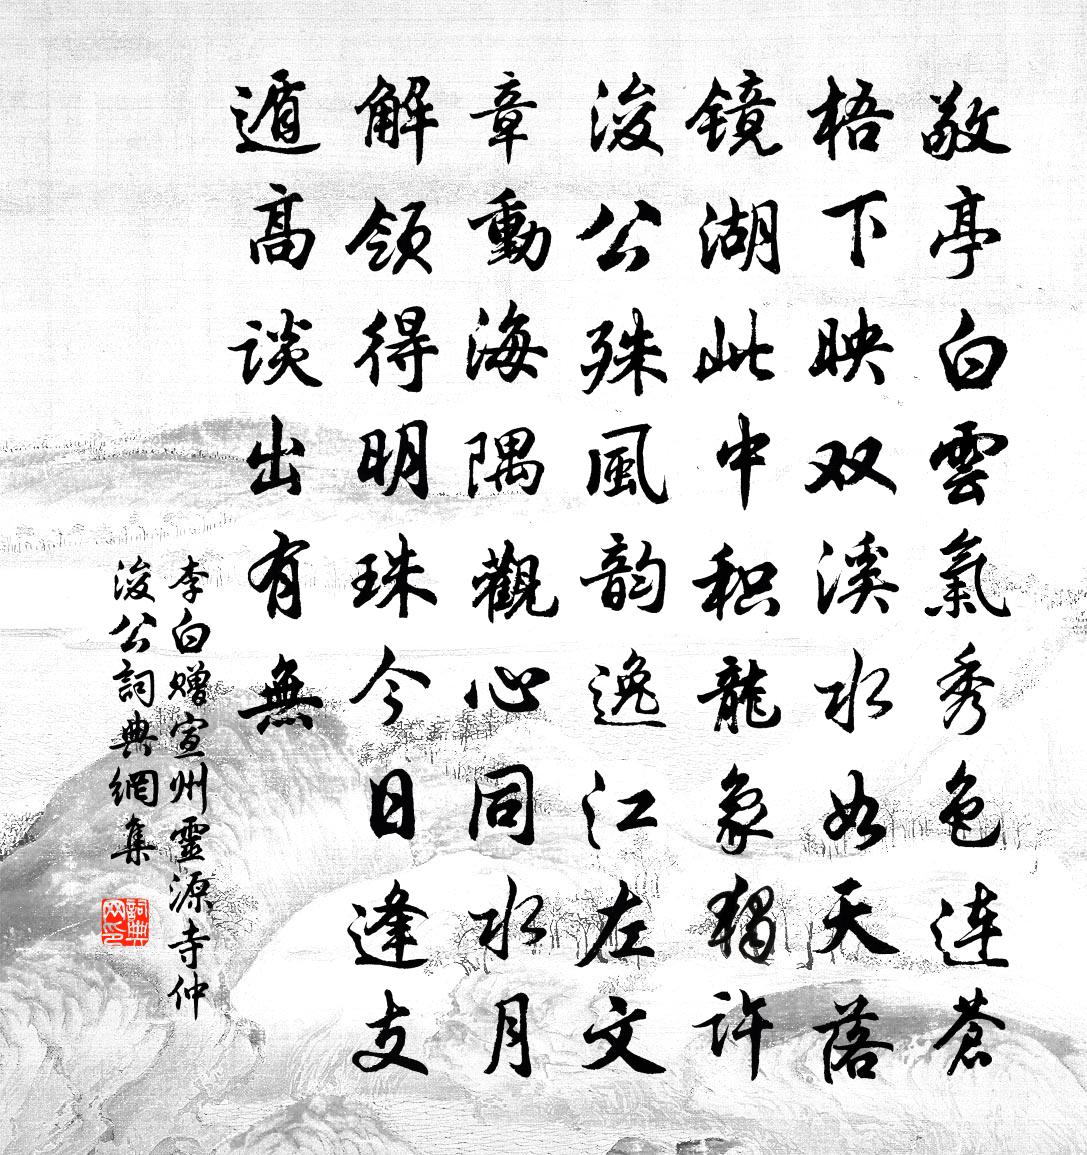 敬亭白雲氣秀色连蒼
梧下映双溪水如天落
镜湖此中积龍象獨许
浚公殊風韵逸江左文
章動海隅觀心同水月
解领得明珠今日逢支
遁高谈出有無
李白赠宣州靈源寺仲
浚公詞典網集
詞典网印